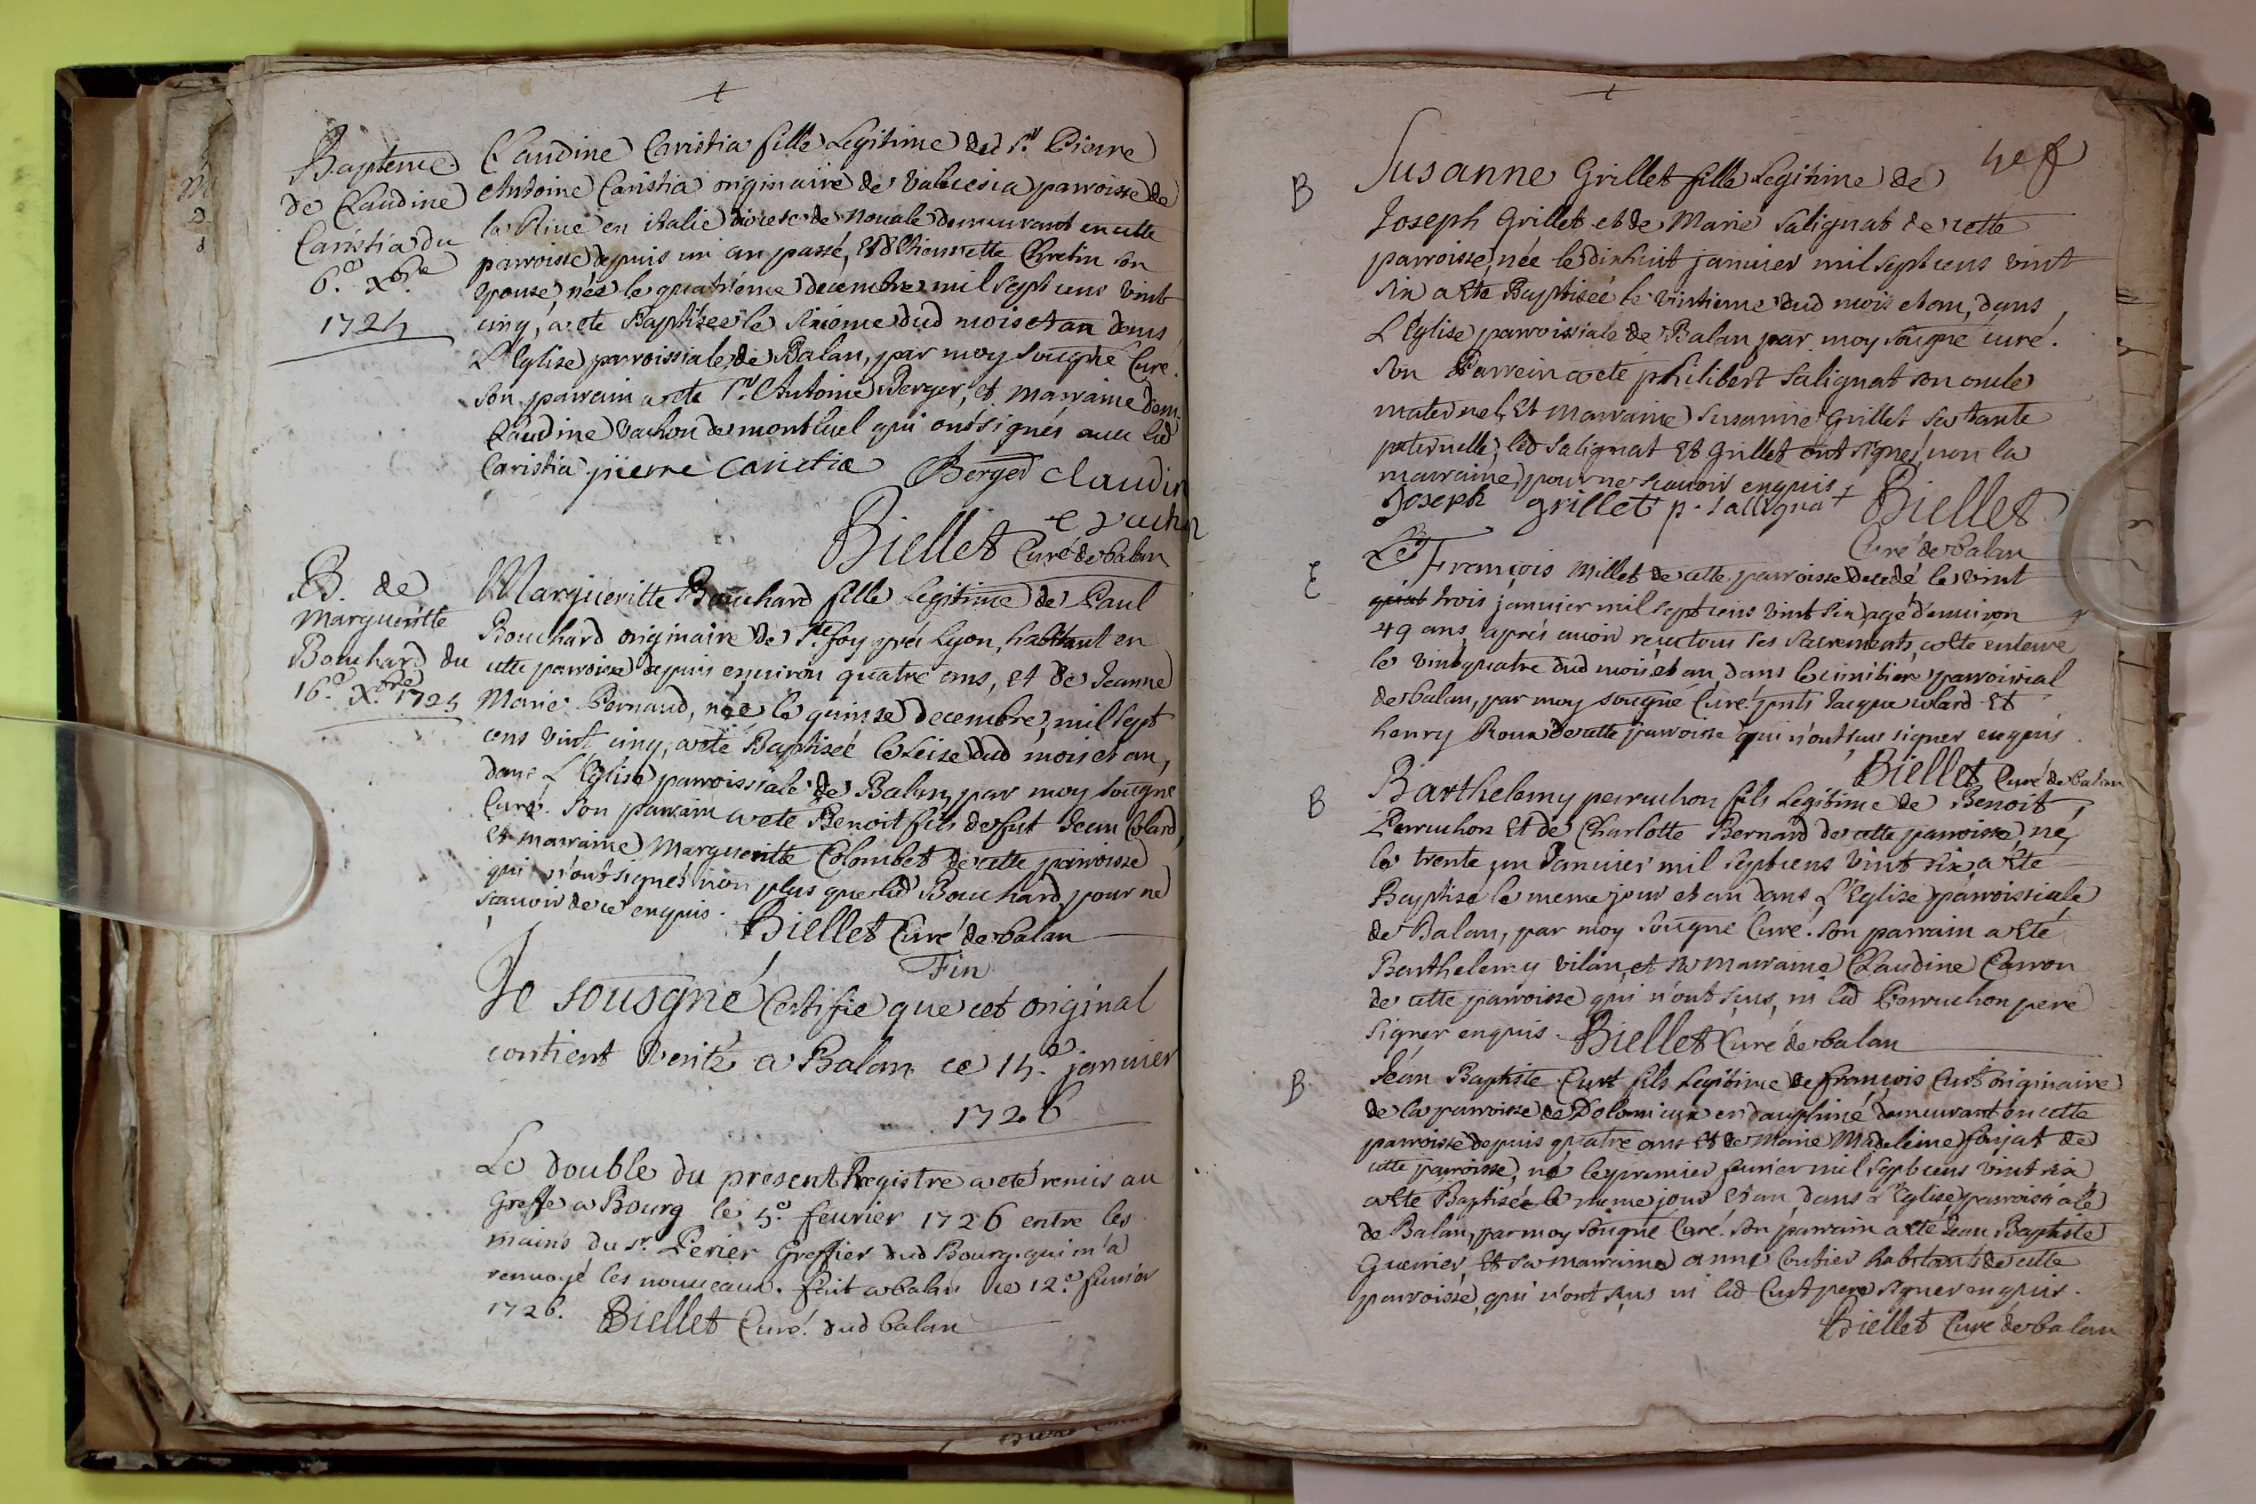 Bapteme
de Claudine
Caristia du
6.e Xbre
1725
Claudine Caristia fille Legitime du Sr. Pierre
Antoine Caristia originaire de Valsesia parroisse de
la Rive en italie diocese de Novale demeurant en cette
parroisse depuis un an passé, et d'Etiennette Chretin son
epouse, née le quatriéme decembre mil sept cens vint
cinq, a eté Baptisée le sixieme dud mois et an dans
L'Eglise parroissiale de Balan, par moy sousgné Curé.
son parrain a eté Sr. Antoine Berger, et marraine dem.
Claudine Vachon de montluel qui ont signés avec led
Caristia. pierre caristia Berger claudin
e vachon
Biellet Curé de balan
B. de
Margueritte
Bouchard du
16.e Xbre 1725
Margueritte Bouchard fille Legitime de Paul
Bouchard originaire de Ste. foy prés Lyon, habitant en
cette parroisse depuis environ quatre ans, et de Jeanne
Marie Bernaud, née le quinze decembre, mil sept
cens vint cinq, a eté Baptisée le seize dud mois et an,
dans L'Eglise parroissiale de Balan, par moy sousgné
Curé. son parrain a eté Benoit fils de fut Jean Colard,
et marraine Margueritte Colombet de cette parroisse
qui n'ont signés non plus que led Bouchard pour ne
scavoir de ce enquis. Biellet Curé de balan
Fin
Je sousgné Certifie que cet original
contient verité a Balan ce 15.e janvier
1726
Le double du present Registre a eté remis au
Greffe a Bourg le 5.e fevrier 1726 entre les
mains du Sr. Perier Greffier dud Bourg. qui m'a
renvoyé les nouveaux. fait a balan ce 12.e fevrier
1726. Biellet Curé dud balan
B
Susanne Grillet fille Legitime de
Joseph Grillet et de Marie Salignat de cette
parroisse, née le dixhuit janvier mil sept cens vint
six a eté Baptisée le vintieme dud mois et an, dans
L'Eglise parroissiale de Balan par moy sousgné curé.
son Parrein a eté philibert Salignat son oncle
maternel, et marraine Susanne Grillet sa tante
paternelle, led Salignat et Grillet ont signé, non la
marraine pour ne scavoir enquis
Joseph grillet p. sallignat Biellet
Curé de balan
E
François Millet de cette parroisse decedé le vint
trois janvier mil sept cens vint six, agé d'environ
49 ans, aprés avoir recu tous ses sacrements, a eté enterré
le vint quatre dud mois et an, dans le cimitiere parroissial
de balan, par moy sousgné Curé. pnts Jacque Colard et
henry Roux de cette parroisse qui n'ont sus signer enquis.
Biellet Curé de balan
B
Barthelemy perruchon fils Legitime de Benoit
Perruchon et de Charlotte Bernard de cette parroisse, né
le trente un Janvier mil sept cens vint six, a eté
Baptisé le meme jour et an dans L'Eglise parroissiale
de Balan, par moy sousgné Curé. son parrain a eté
Barthelemy vilan, et sa marraine Claudine Carron
de cette parroisse qui n'ont sus, ni led Perruchon pere
signer enquis. Biellet Curé de balan
B.
Jean Baptiste Curt fils Legitime de françois Curt originaire
de la parroisse de Dolomieux en dauphiné demeurant en cette
parroisse depuis quatre ans et de Marie Madeleine forjat de
cette parroisse, né le premier fevrier mil sept cens vint six
a eté Baptisé le meme jour et an dans L'Eglise parroissiale
de Balan, par moy sousgné Curé. son parrain a eté Jean Baptiste
Guerrier, et sa marraine anne Coutier habitants de cette
parroisse, qui n'ont sus ni led Curt pere signer enquis.
Biellet Curé de balan